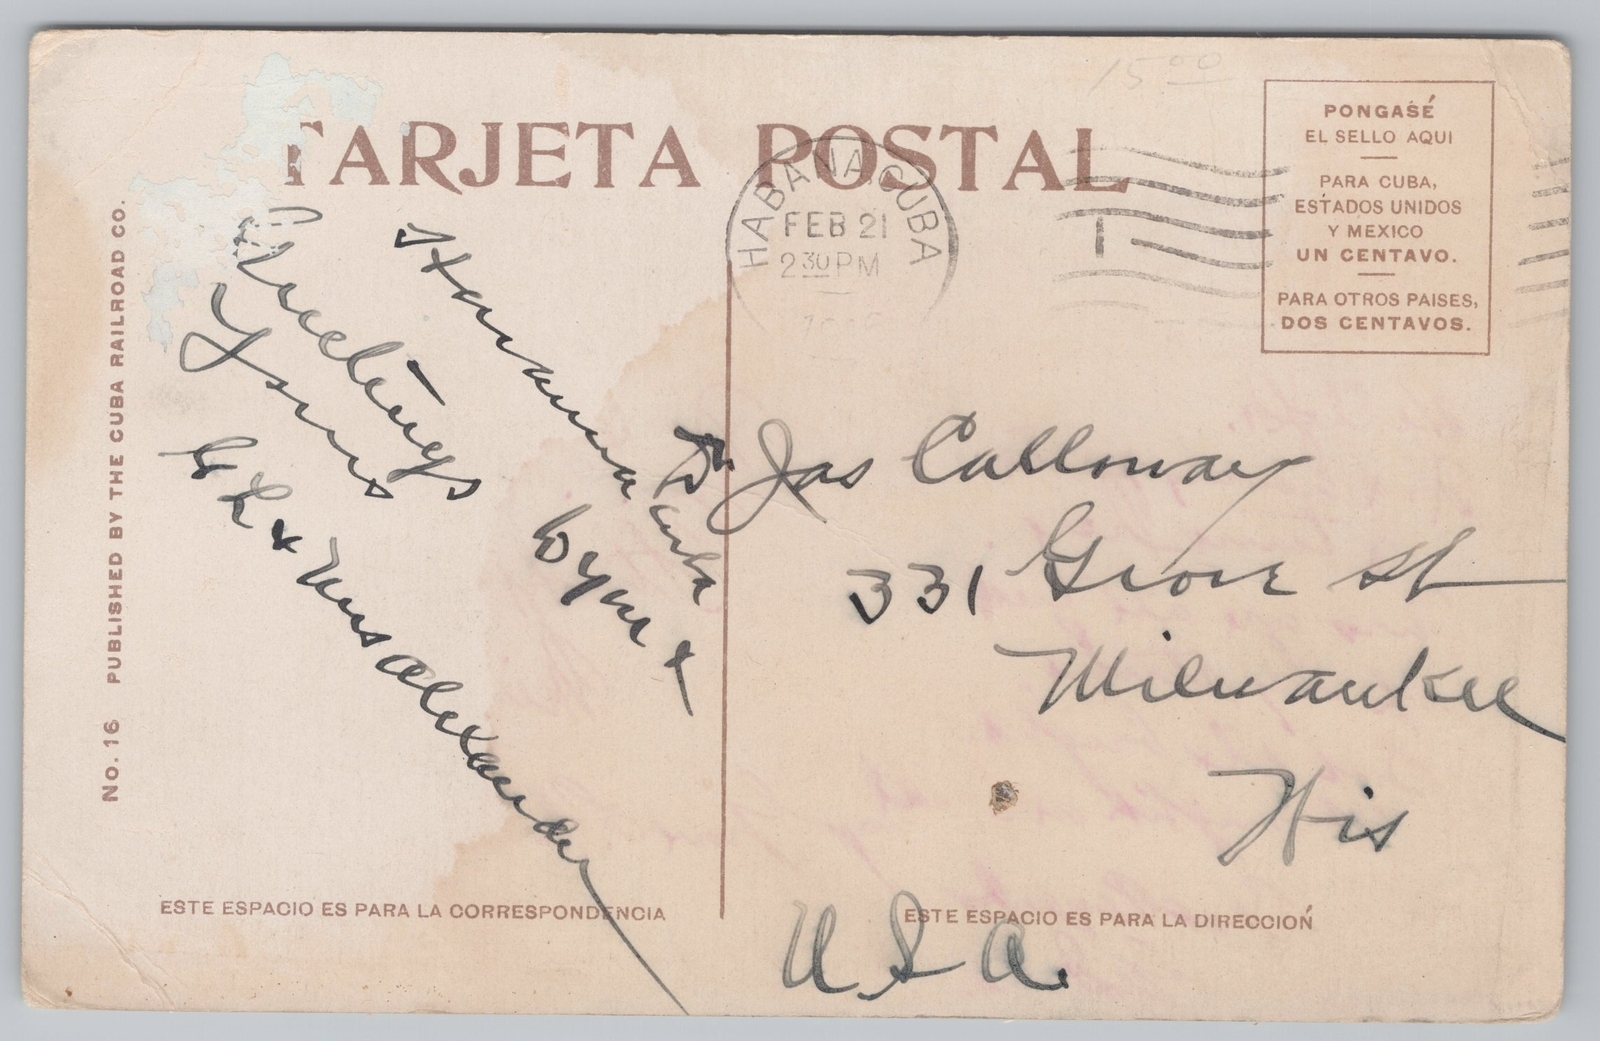 15 00
TARJETA POSTAL
HABANA CUBA
FEB 21
2 30 PM
PONGASÉ
EL SELLO AQUI
PARA CUBA,
ESTADOS UNIDOS
Y MEXICO
UN CENTAVO.
PARA OTROS PAISES,
DOS CENTAVOS.
NO. 16 PUBLISHED BY THE CUBA RAILROAD CO.
Havana Cuba
Greetings
Yours
& Mrs Alexander
Jas Calloway
331 Grove St
Milwaukee
Wis
U.S.A.
ESTE ESPACIO ES PARA LA CORRESPONDENCIA
ESTE ESPACIO ES PARA LA DIRECCIOŃ